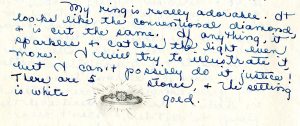 My ring is really adorable. It
looks like the conventional diamond
& is cut the same. If anything, it
sparkles & catches the light even
more. I will try to illustrate it
but I can't possibly do it justice!
There are 5 stones, & the setting
is white gold.